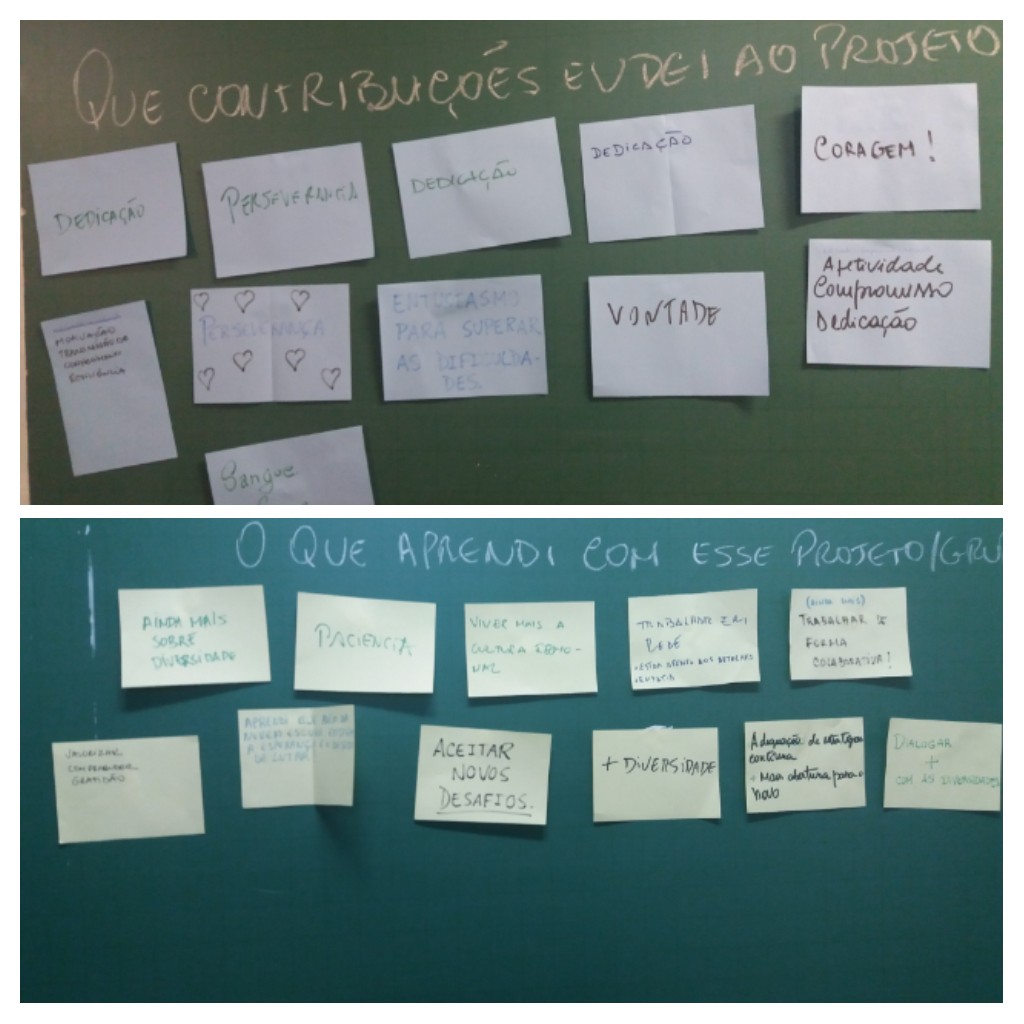 QUE CONTRIBUIÇÕES EU DEI AO PROJETO
DEDICAÇÃO
PERSEVERANCIA
DEDICAÇÃO
DEDICAÇÃO
CORAGEM!
MOTIVAÇÃO
PERSEVERANÇA
ENTUSIASMO
PARA SUPERAR
AS DIFICULDA-
DES.
VONTADE
Afetividade
Compromisso
Dedicação
Sangue
O QUE APRENDI COM ESSE PROJETO/GRU
AINDA MAIS
SOBRE
DIVERSIDADE
PACIENCIA
VIVER MAIS A
CULTURA
TRABALHAR EM
REDE
ESTAR ATENTO AOS DETALHES
(AINDA MAIS)
TRABALHAR DE
FORMA
COLABORATIVA!
VALORIZAR
COMPREENDER
GRATIDÃO
APRENDI
A ESPERANÇA
DE LUTAR
ACEITAR
NOVOS
DESAFIOS.
+ DIVERSIDADE
Adequação de estratégias
contínua
- Mais abertura para o
novo
DIALOGAR
+
COM AS DIVERSIDADES